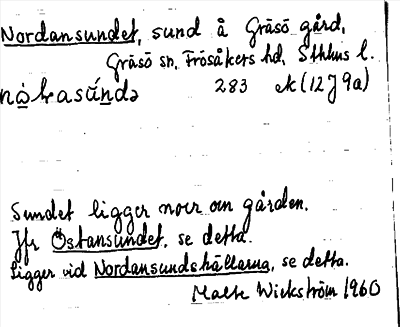 Nordansundet, sund å Gräsö gård,
Gräsö sn, Frösåkers hd, Sthlms l.
283 ek (12J9a)
Sundet ligger norr om gården.
Jfr Östansundet, se detta.
Ligger vid Nordansundshällarna, se detta.
Malte Wickström 1960